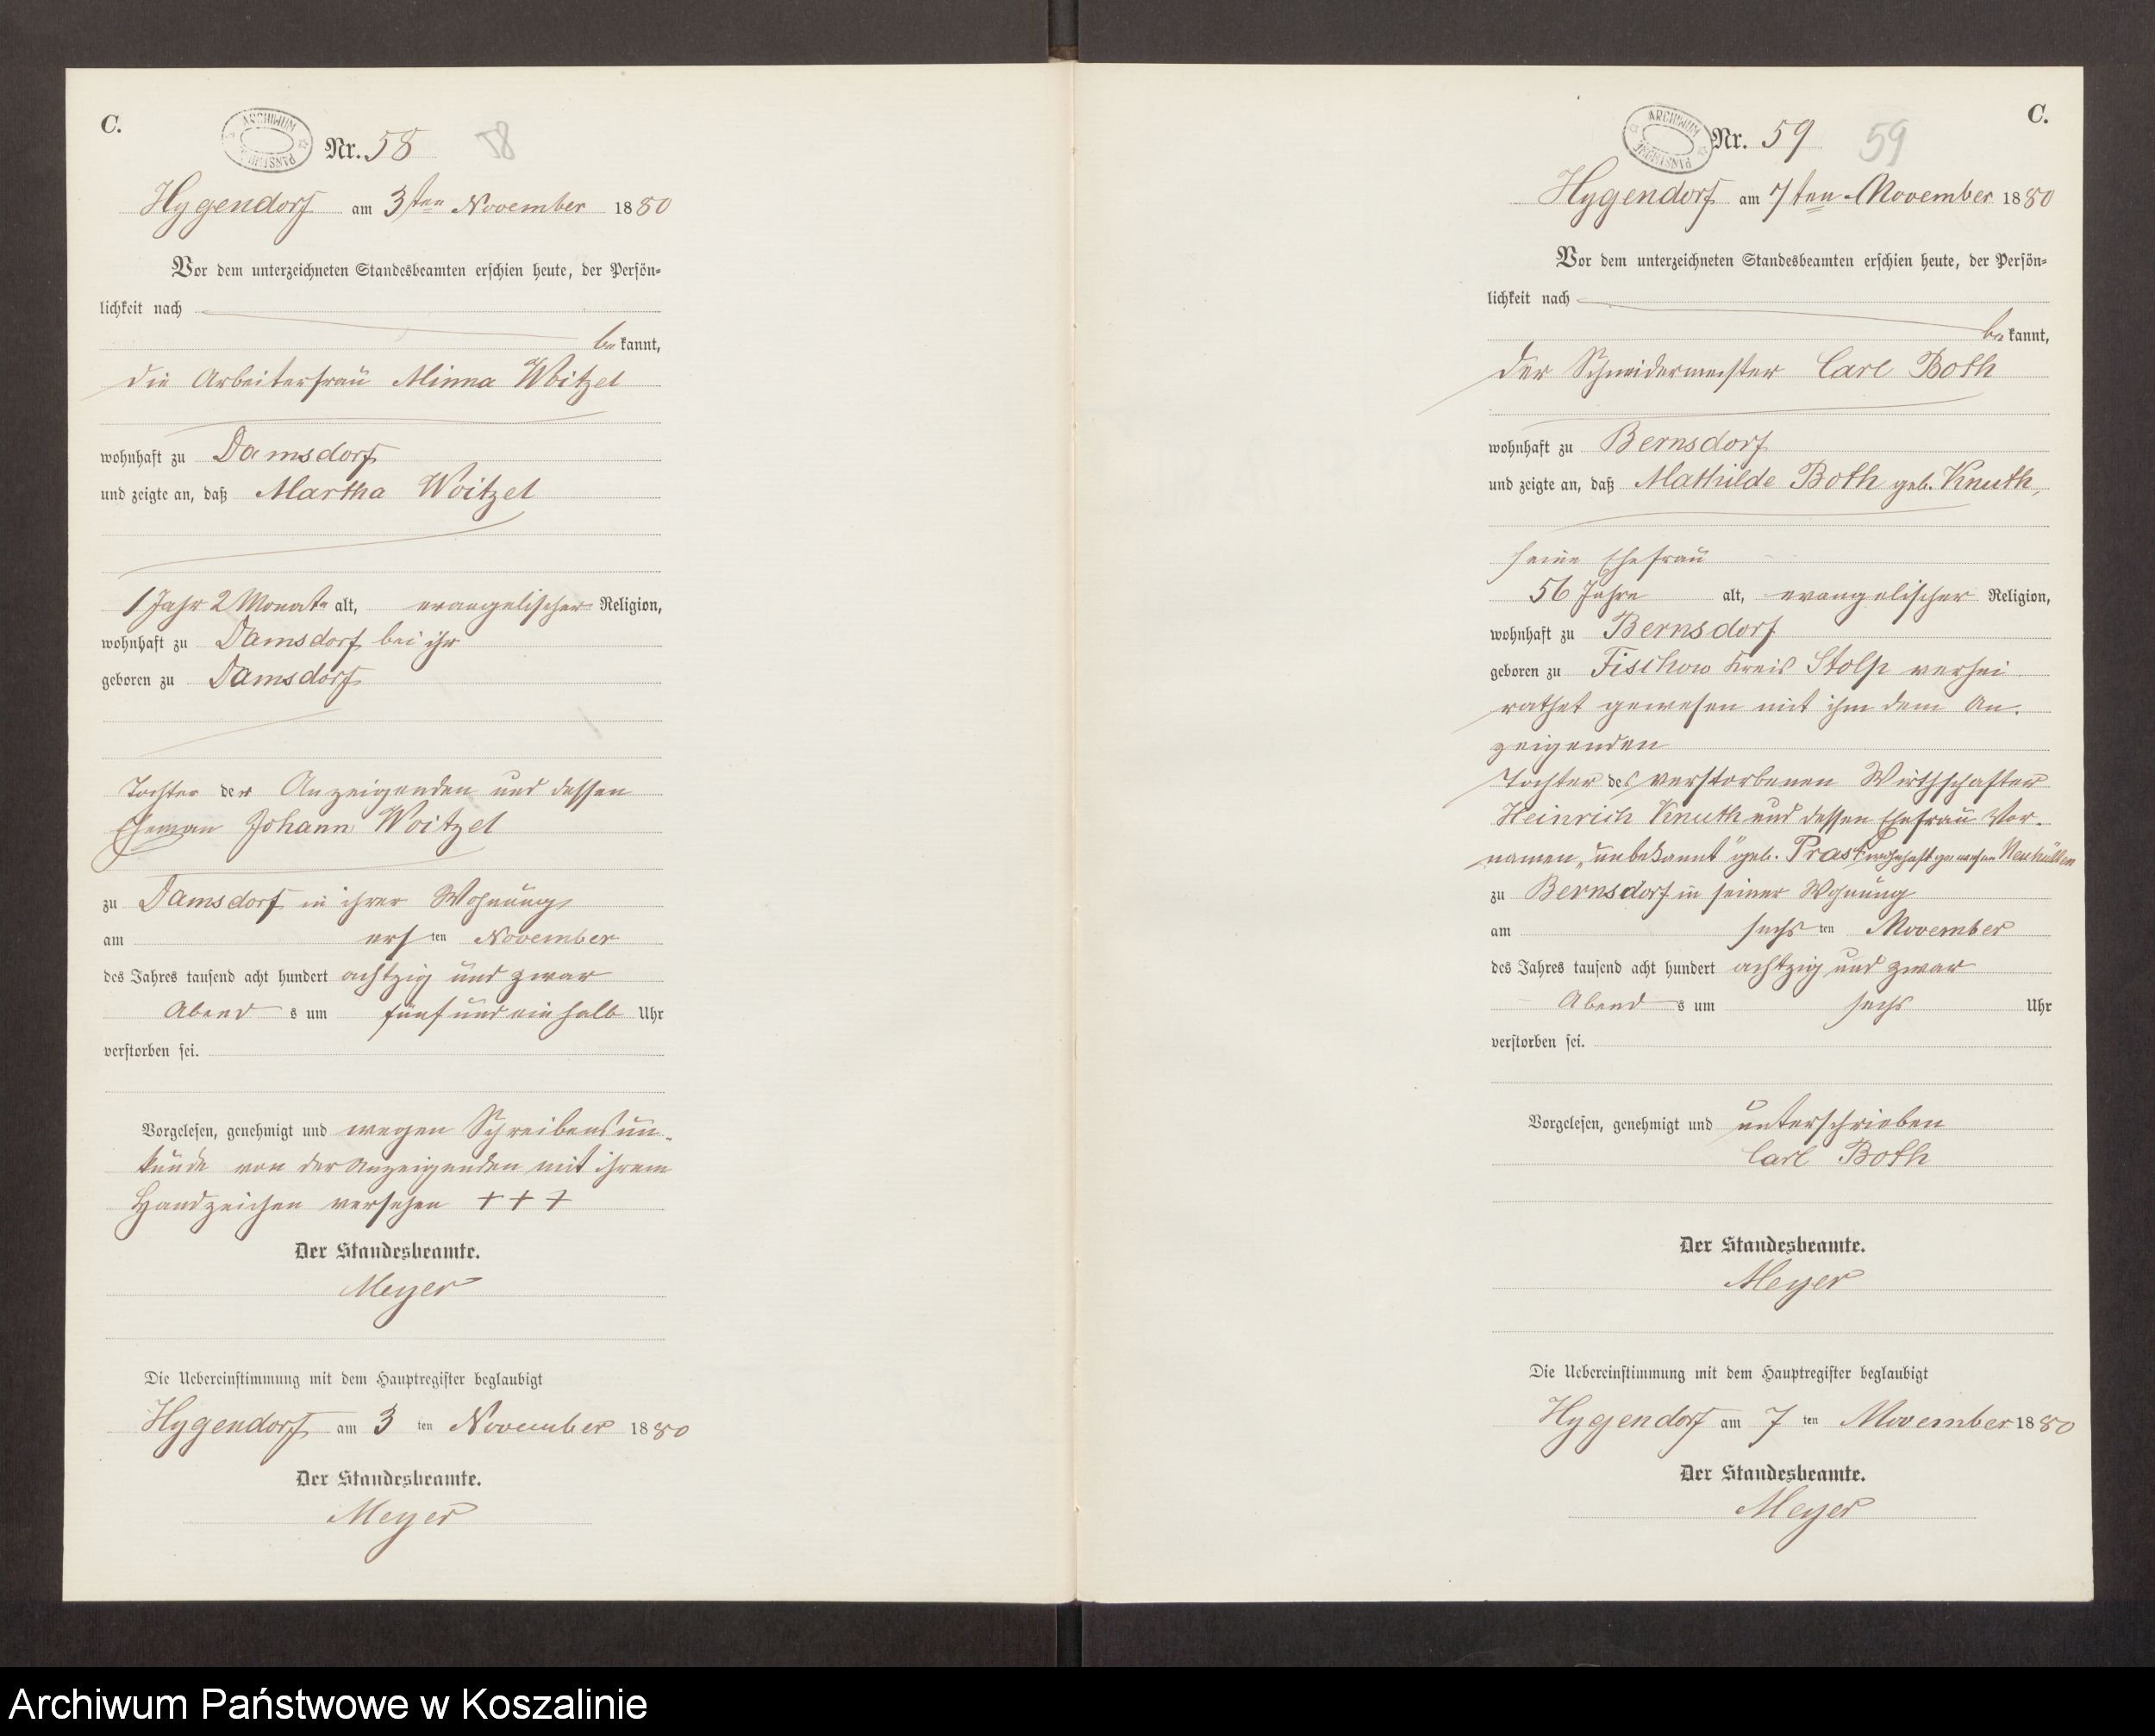 C.
ARCHIWUM PAŃSTWOWE
Nr. 58 58
Hygendorf am 3ten November 1880
Vor dem unterzeichneten Standesbeamten erschien heute, der Persön-
lichkeit nach
bekannt,
die Arbeiterfrau Minna Woitzel
wohnhaft zu Damsdorf
und zeigte an, daß Martha Woitzel
1 Jahr 2 Monate alt, evangelischer Religion,
wohnhaft zu Damsdorf bei ihr
geboren zu Damsdorf
Tochter der Anzeigenden und dessen
Eheman Johann Woitzel
zu Damsdorf in ihrer Wohnung
am ersten November
des Jahres tausend acht hundert achtzig und zwar
Abends um fünf und ein halb Uhr
verstorben sei.
Vorgelesen, genehmigt und wegen Schreibensun-
kunde von der Anzeigenden mit ihrem
Handzeichen versehen + + +
Der Standesbeamte.
Meyer
Die Uebereinstimmung mit dem Hauptregister beglaubigt
Hygendorf am 3 ten November 1880
Der Standesbeamte.
Meyer
C.
ARCHIWUM PAŃSTWOWE
Nr. 59 59
Hygendorf am 7ten November 1880
Vor dem unterzeichneten Standesbeamten erschien heute, der Persön-
lichkeit nach
bekannt,
der Schneidermeister Carl Both
wohnhaft zu Bernsdorf
und zeigte an, daß Mathilde Both geb. Knuth,
seine Ehefrau
56 Jahre alt, evangelischer Religion,
wohnhaft zu Bernsdorf
geboren zu Fischow Kreis Stolp verhei
rathet gewesen mit ihm dem An-
zeigenden
Tochter des verstorbenen Wirthschafter
Heinrich Knuth und dessen Ehefrau Vor-
namen „unbekannt" geb. Prast wohnhaft gewesen
zu Bernsdorf in seiner Wohnung
am sechsten November
des Jahres tausend acht hundert achtzig und zwar
Abends um sechs Uhr
verstorben sei.
Vorgelesen, genehmigt und unterschrieben
Carl Both
Der Standesbeamte.
Meyer
Die Uebereinstimmung mit dem Hauptregister beglaubigt
Hygendorf am 7 ten November 1880
Der Standesbeamte.
Meyer
Archiwum Państwowe w Koszalinie